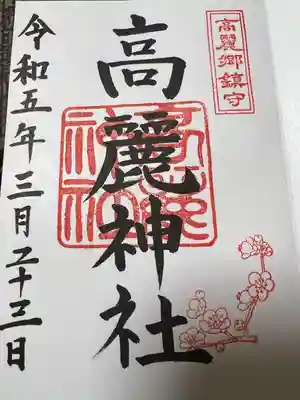 高麗郷鎮守
高麗神社
令和五年三月二十三日